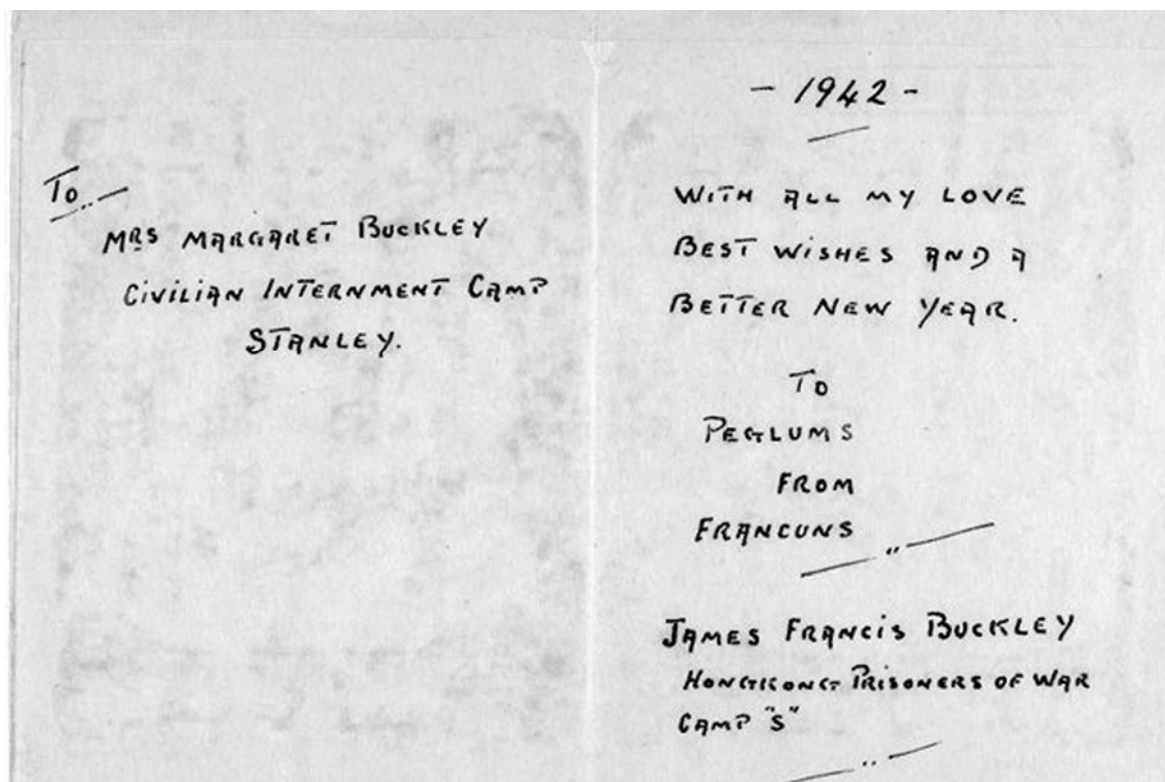 To
Mrs Margaret Buckley
Civilian Internment Camp
Stanley.
- 1942 -
With all my love
Best wishes and a
Better New Year.
To
Peglums
from
Francuns
James Francis Buckley
Hongkong Prisoners of War
Camp "S"